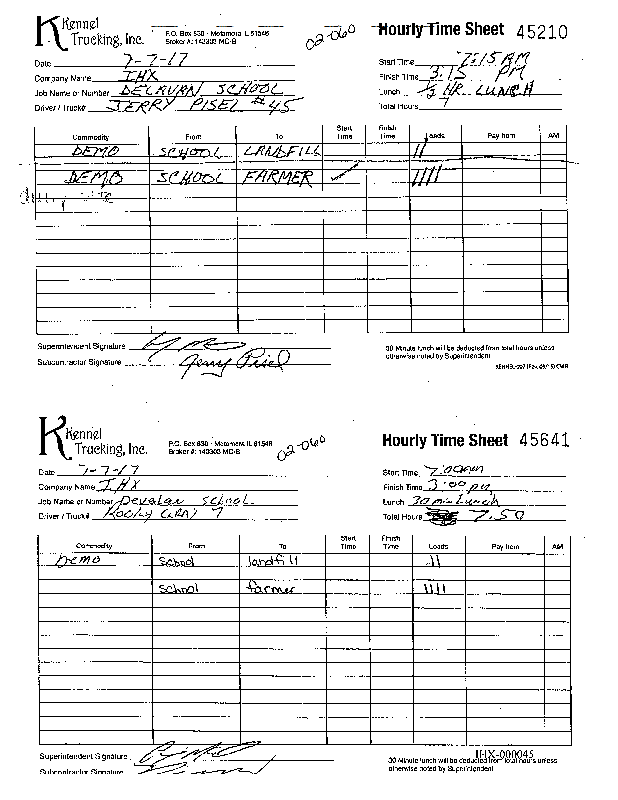 Kennel
Trucking, Inc.
P.O. Box 530 - Metamora IL 61548
Broker #: 143303 MC-B
02-060
Hourly Time Sheet 45210
Date 7-7-17
Company Name IHX
Job Name or Number DELAVAN SCHOOL
Driver / Truck# JERRY PISEL #45
Start Time 7:15 AM
Finish Time 3:15 PM
Lunch 1/2 HR. LUNCH
Total Hours
Commodity From To Start Time Finish Time Loads Pay Item AM
DEMO SCHOOL LANDFILL ||
DEMO SCHOOL FARMER ✓ ||||
Superintendent Signature
Subcontractor Signature Jerry Pisel
30 Minute lunch will be deducted from total hours unless
otherwise noted by Superintendent
Kennel
Trucking, Inc.
P.O. Box 530 - Metamora IL 61548
Broker #: 143303 MC-B
02-060
Hourly Time Sheet 45641
Date 7-7-17
Company Name IHX
Job Name or Number Develan School
Driver / Truck# 7
Start Time 7:00am
Finish Time 3:00 pm
Lunch 30 min Lunch
Total Hours 7.50
Commodity From To Start Time Finish Time Loads Pay Item AM
Demo School landfill ||
School farmer ||||
Superintendent Signature
Subcontractor Signature
IHX-000045
30 Minute lunch will be deducted from total hours unless
otherwise noted by Superintendent